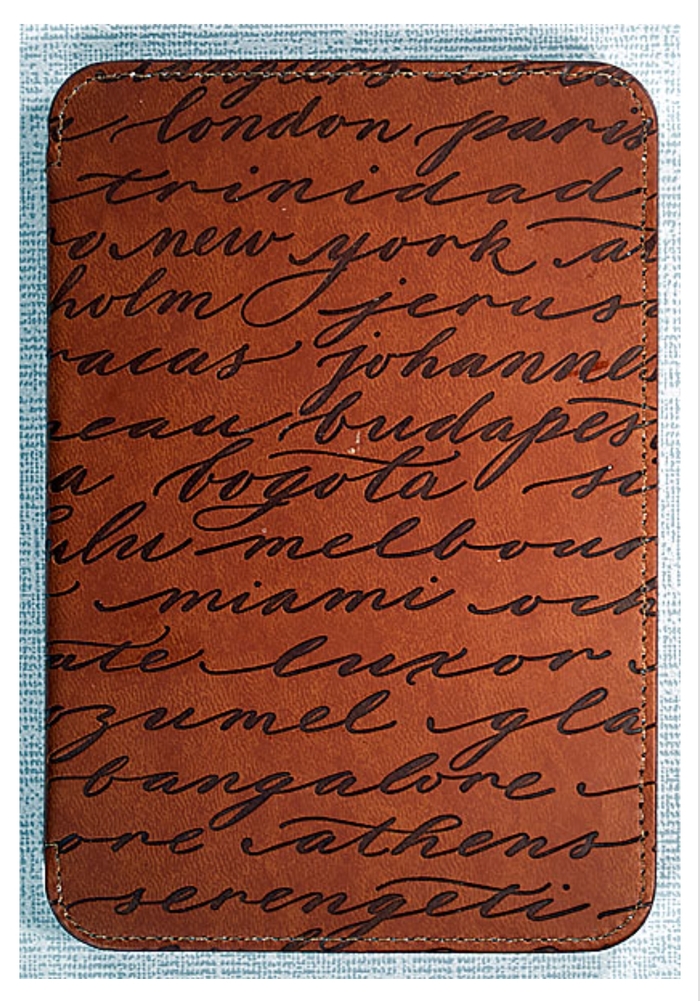 london paris
trinidad
o new york a
holm jerus
racas johannes
eau budapest
a bogota s
ulu melbour
miami och
ate luxor
ozumel gla
bangalore
ore athens
serengeti